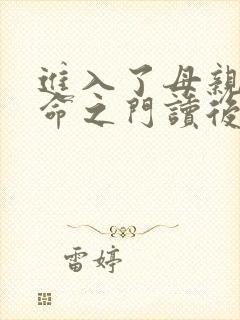 進入了母親
命之門讀後
雷婷